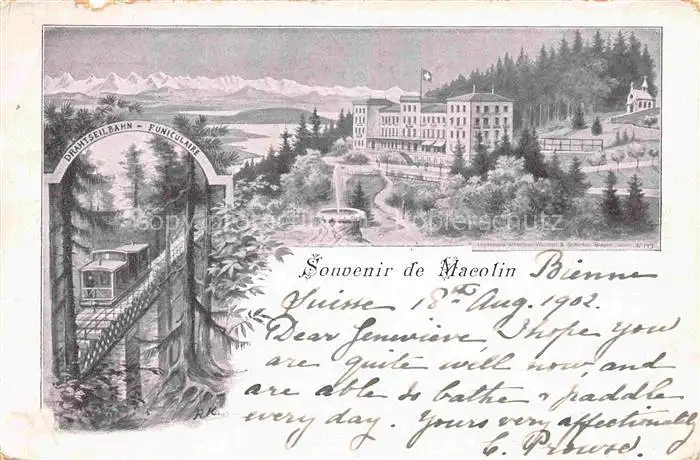 DRAHTSEILBAHN - FUNICULAIRE
Souvenir de Macolin
Bienne
Suisse 18th Aug. 1902.
Dear Genevieve I hope you
are quite well now, and
are able to bathe & paddle
every day. Yours very affectionately
C. Prowse.
R.K.